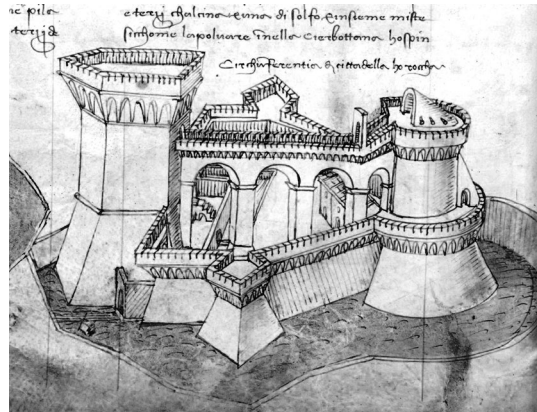 ne pila
terij de
eterij chalcina euna di solfo, einsieme miste
sicchome lapoluare nella cierbottana hospin
Circhunferentia di cittadella ho roccha